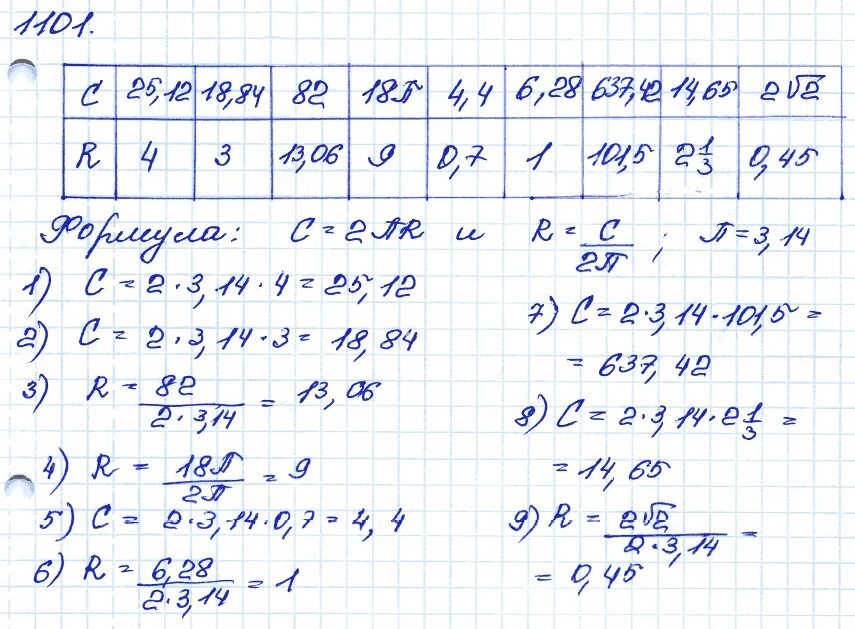 1101.
C 25,12 18,84 82 18П 4,4 6,28 637,42 14,65 2√2
R 4 3 13,06 9 0,7 1 101,5 2 1/3 0,45
Формула: C = 2ПR и R = C/2П ; П = 3,14
1) C = 2·3,14·4 = 25,12
2) C = 2·3,14·3 = 18,84
3) R = 82/2·3,14 = 13,06
4) R = 18П/2П = 9
5) C = 2·3,14·0,7 = 4,4
6) R = 6,28/2·3,14 = 1
7) C = 2·3,14·101,5 =
= 637,42
8) C = 2·3,14·2 1/3 =
= 14,65
9) R = 2√2/2·3,14 =
= 0,45